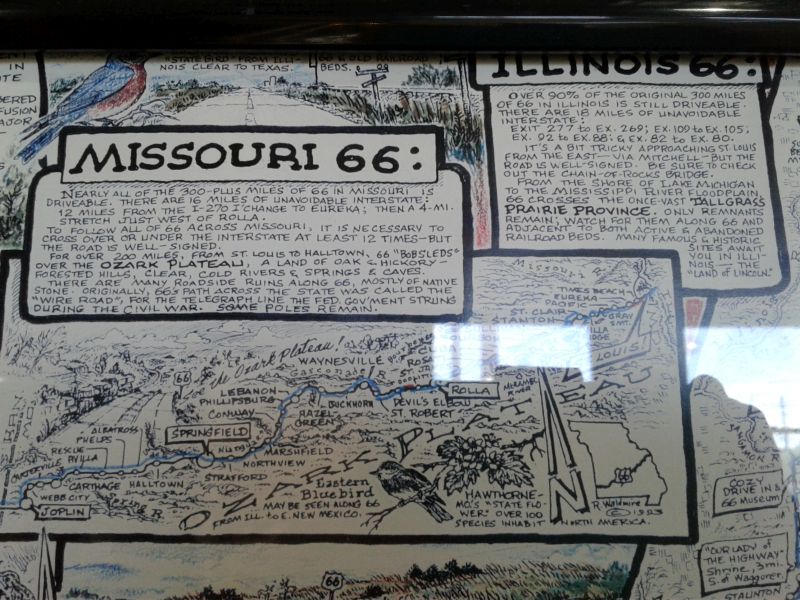 "STATE BIRD" FROM ILLI-
NOIS CLEAR TO TEXAS.
& OLD RAILROAD
BEDS.
MISSOURI 66:
NEARLY ALL OF THE 300-PLUS MILES OF 66 IN MISSOURI IS
DRIVEABLE. THERE ARE 16 MILES OF UNAVOIDABLE INTERSTATE:
12 MILES FROM THE I-270 I'CHANGE TO EUREKA; THEN A 4-MI.
STRETCH JUST WEST OF ROLLA.
TO FOLLOW ALL OF 66 ACROSS MISSOURI, IT IS NECESSARY TO
CROSS OVER OR UNDER THE INTERSTATE AT LEAST 12 TIMES—BUT
THE ROAD IS WELL-SIGNED.
FOR OVER 200 MILES, FROM ST. LOUIS TO HALLTOWN, 66 "BOBSLEDS"
OVER THE OZARK PLATEAU, A LAND OF OAK & HICKORY-
FORESTED HILLS, CLEAR, COLD RIVERS & SPRINGS & CAVES.
THERE ARE MANY ROADSIDE RUINS ALONG 66, MOSTLY OF NATIVE
STONE. ORIGINALLY, 66'S PATH ACROSS THE STATE WAS CALLED THE
"WIRE ROAD", FOR THE TELEGRAPH LINE THE FED. GOV'MENT STRUNG
DURING THE CIVIL WAR. SOME POLES REMAIN.
ILLINOIS 66:
OVER 90% OF THE ORIGINAL 300 MILES
OF 66 IN ILLINOIS IS STILL DRIVEABLE.
THERE ARE 18 MILES OF UNAVOIDABLE
INTERSTATE:
EXIT 277 TO EX. 269; EX. 109 TO EX. 105;
EX. 92 TO EX. 88; & EX. 82 TO EX. 80.
IT'S A BIT TRICKY APPROACHING ST. LOUIS
FROM THE EAST—VIA MITCHELL—BUT THE
ROAD IS WELL-SIGNED. BE SURE TO CHECK
OUT THE CHAIN-OF-ROCKS BRIDGE.
FROM THE SHORE OF LAKE MICHIGAN
TO THE MISSISSIPPI RIVER FLOODPLAIN,
66 CROSSES THE ONCE-VAST TALLGRASS
PRAIRIE PROVINCE. ONLY REMNANTS
REMAIN; WATCH FOR THEM ALONG 66 AND
ADJACENT TO BOTH ACTIVE & ABANDONED
RAILROAD BEDS. MANY FAMOUS & HISTORIC
SITES AWAIT
YOU IN ILLI-
NOIS—THE
"LAND OF LINCOLN."
MISSOURI R.
TIMES BEACH
EUREKA
PACIFIC
ST. CLAIR
STANTON
GRAY
SMT.
ST. LOUIS
the Ozark Plateau!
66
WAYNESVILLE
Gasconade R.
LEBANON
PHILLIPSBURG
CONWAY
BUCKHORN
HAZEL
GREEN
DEVIL'S ELBOW
ST. ROBERT
ROLLA
MERAMEC
RIVER
ALBATROSS
PHELPS
RESCUE
AVILLA
SPRINGFIELD
MARSHFIELD
NORTHVIEW
STRAFFORD
CARTHAGE
HALLTOWN
WEBB CITY
JOPLIN
Spring R.
OZARK PLATEAU
Eastern
Bluebird
MAY BE SEEN ALONG 66
FROM ILL. TO E. NEW MEXICO.
HAWTHORNE-
MO.'S "STATE FLO-
WER." OVER 100
SPECIES INHABIT
NORTH AMERICA.
N
66
R Waldmire
© 1993
COZY
DRIVE IN &
66 MUSEUM
"OUR LADY of
THE HIGHWAY"
Shrine, 3 mi.
S. of Waggoner.
STAUNTON
66